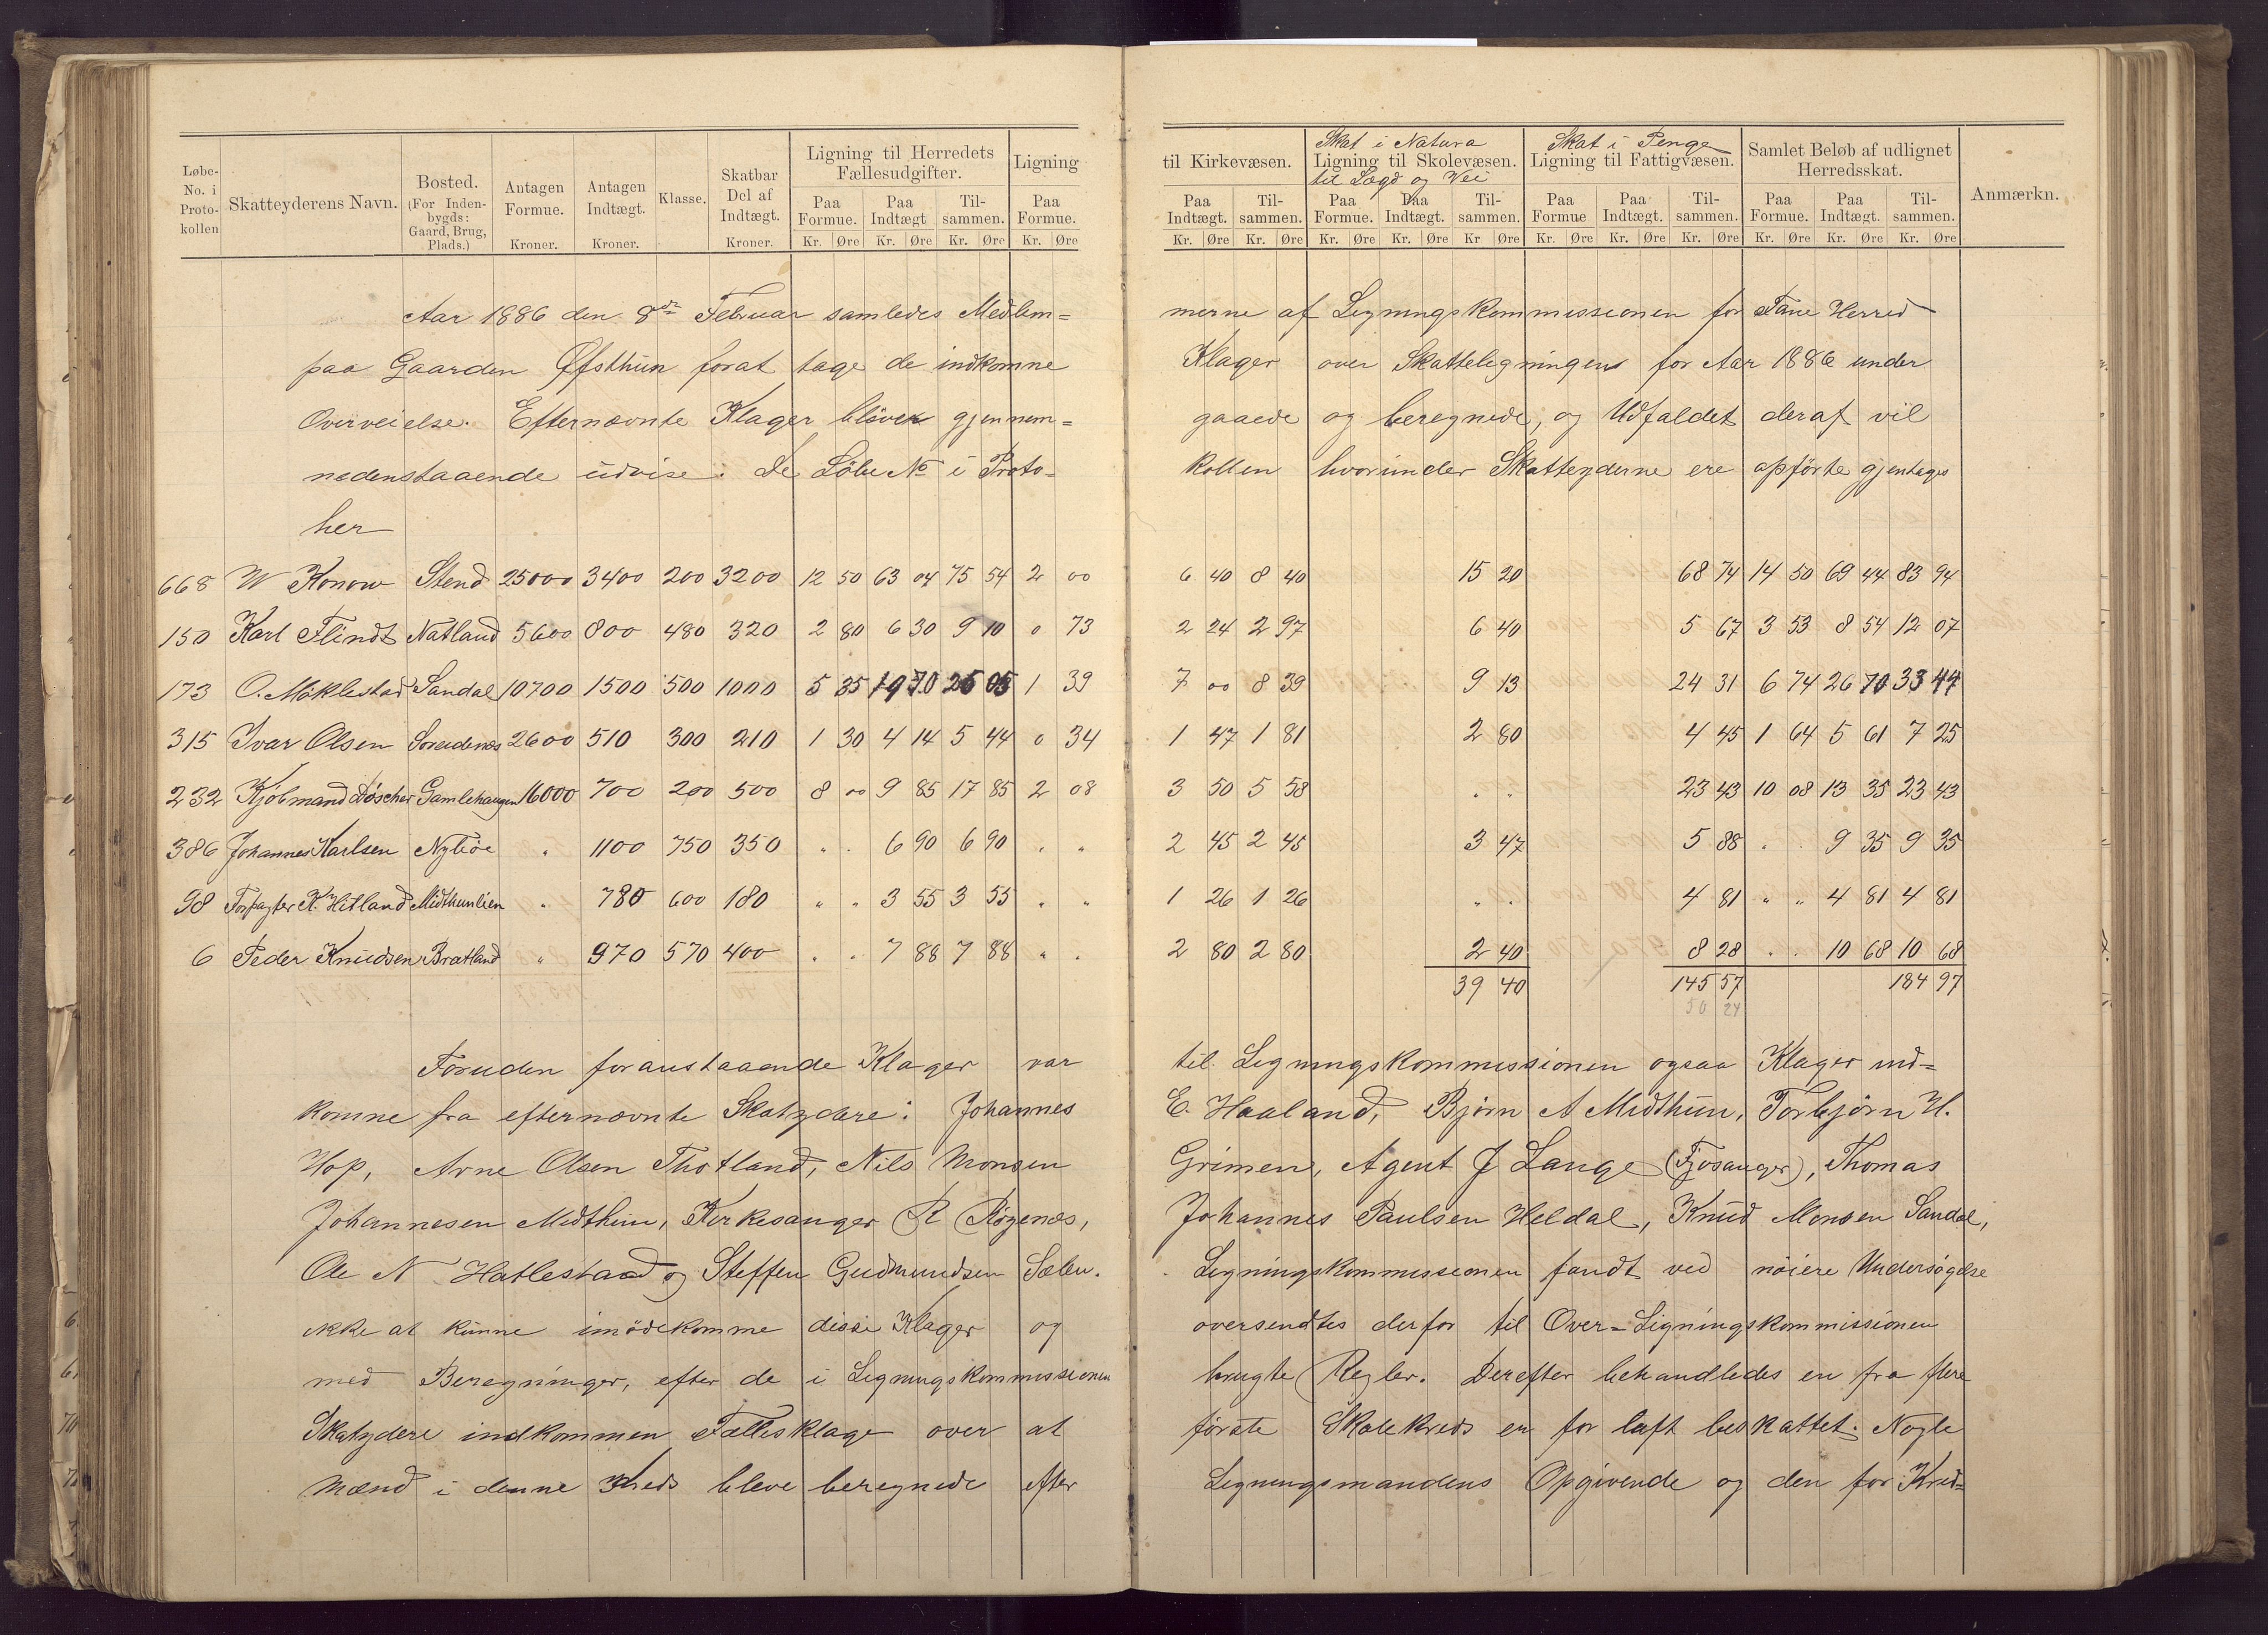 Løbe-No. i Proto-kollen | Skatteyderens Navn. | Bosted. (For Inden-bygds: Gaard, Brug, Plads.) | Antagen Formue. Kroner. | Antagen Indtægt. Kroner. | Klasse. | Skatbar Del af Indtægt. Kroner. | Ligning til Herredets Fællesudgifter. Paa Formue. Kr. Øre Paa Indtægt Kr. Øre Til-sammen. Kr. Øre | Ligning Paa Formue. Kr. Øre | til Kirkevæsen. Paa Indtægt. Kr. Øre Til-sammen. Kr. Øre | Skat i Natura Ligning til Skolevæsen. til Lægd og Vei Paa Formue. Kr. Øre Paa Indtægt. Kr. Øre Til-sammen. Kr Øre | Skat i Penge Ligning til Fattigvæsen. Paa Formue Kr. Øre Paa Indtægt. Kr. Øre Til-sammen. Kr. Øre | Samlet Beløb af udlignet Herredsskat. Paa Formue. Kr. Øre Paa Indtægt. Kr. Øre Til-sammen. Kr. Øre | Anmærkn.
Aar 1886 den 8de Februar samledes Medlem= merne af Ligningskommissionen for Fane Herred
paa Gaarden Øfsthun forat tage de indkomne Klager over Skatteligningen for Aar 1886 under
Overveielse. Efternævnte Klager bleve gjennem= gaaede og beregnede, og Udfaldet deraf vil
nedenstaaende udvise. De Løbe No i Proto- kollen hvorunder Skatteyderne ere opførte gjentages
her
668 W Konow Stend 25000 3400 200 3200 12 50 63 04 75 54 2 00 6 40 8 40 15 20 68 74 14 50 69 44 83 94
150 Karl Flindt Natland 5600 800 480 320 2 80 6 30 9 10 0 73 2 24 2 97 6 40 5 67 3 53 8 54 12 07
173 O. Møklestad Sandal 10700 1500 500 1000 5 35 19 70 25 05 1 39 7 00 8 39 9 13 24 31 6 74 26 70 33 44
315 Ivar Olsen Soreidnæs 2600 510 300 210 1 30 4 14 5 44 0 34 1 47 1 81 2 80 4 45 1 64 5 61 7 25
232 Kjøbmand Døscher Gamlehaugen 16000 700 200 500 8 00 9 85 17 85 2 08 3 50 5 58 " " 23 43 10 08 13 35 23 43
386 Johannes Karlsen Nybøe " 1100 750 350 " " 6 90 6 90 " " 2 45 2 45 3 47 5 88 " " 9 35 9 35
98 Forpagter K. Hitland Midthunlien " 780 600 180 " " 3 55 3 55 " " 1 26 1 26 " " 4 81 " " 4 81 4 81
6 Peder Knudsen Bratland " 970 570 400 " " 7 88 7 88 " " 2 80 2 80 2 40 8 28 " " 10 68 10 68
39 40 145 57 184 97
50 24
Foruden foranstaaende Klager var til Ligningskommissionen ogsaa Klager ind=
komne fra efternævnte Skatydere: Johannes E. Haaland, Bjørn A Midthun, Torbjørn H.
Hop, Arne Olsen Thotland, Nils Monsen Grimen, Agent J Lange (Fjøsanger), Thomas
Johannesen Midthun, Kirkesanger R Røgenæs, Johannes Paulsen Heldal, Knud Monsen Sandal,
Ole N Hatlestaad og Steffen Gudmundsen Sælen. Ligningskommissionen fandt ved nøiere Undersøgelse
ikke at kunne imødekomme disse Klager og oversendtes derfor til Over-Ligningskommissionen
med Beregninger, efter de i Ligningskommissionen brugte Regler. Derefter behandledes en fra flere
Skatydere indkommen Fællesklage over at første Skolekreds er for laft beskattet. Nogle
Mænd i denne Kreds bleve beregnede efter Ligningsmandens Opgivende og den for Kred=